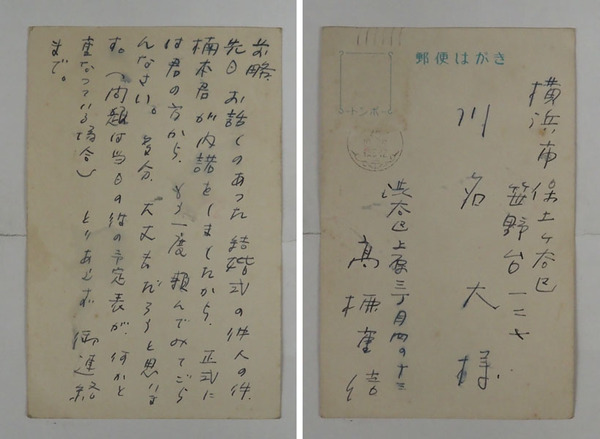 前略
先日お話しのあった結婚式の仲人の件、
楠本君が内諾をしましたから、正式に
は君の方から、もう一度頼んでみてごら
んなさい。多分、大丈夫だろうと思いま
す。(問題は当日の彼の予定表が、何かと
重なっている場合) とりあえず 御連絡
まで。
郵便はがき
トンボー
横浜市保土ヶ谷区
笹野台一二七
川名 大 様
渋谷区上原三丁目四の十三
高柳重信